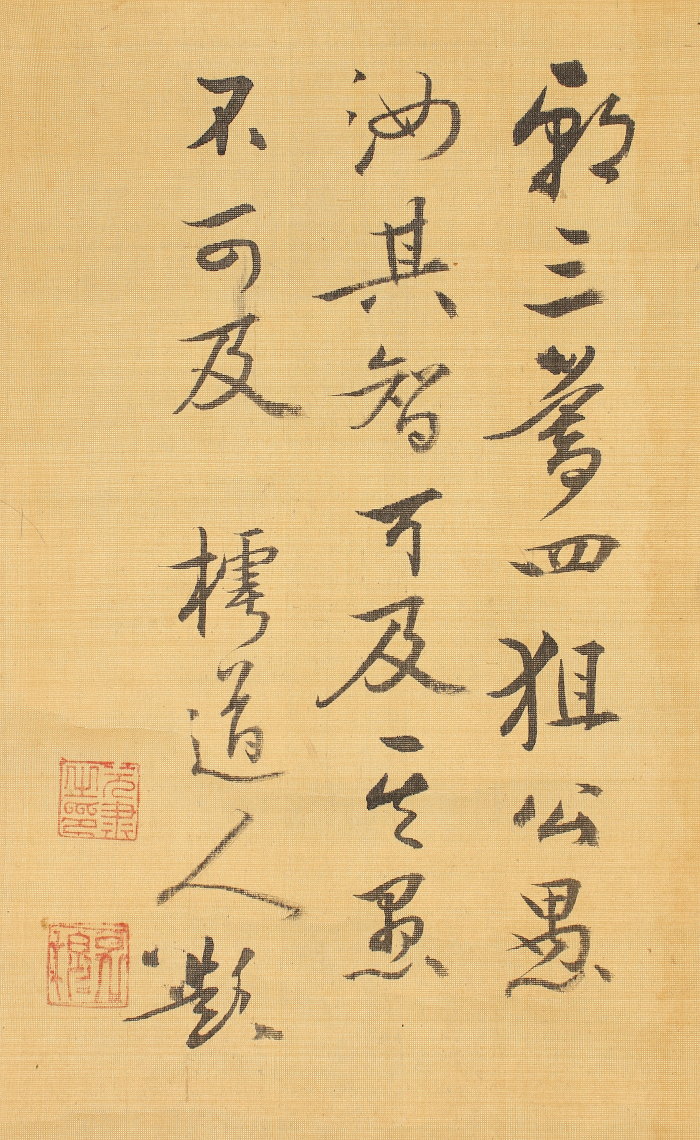 朝三暮四狙公愚
汝其智可及其愚
不可及 樗道人題